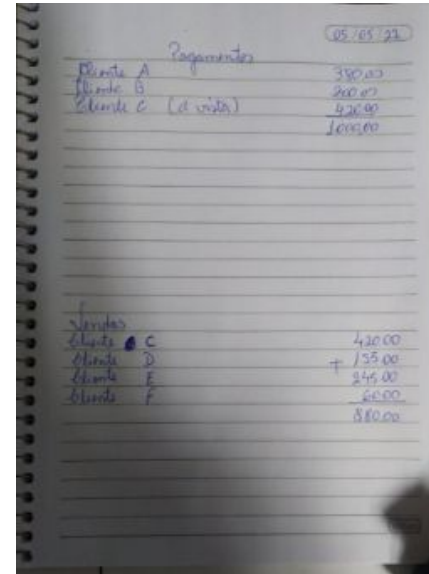 05/05/21
Pagamentos
Cliente A 380,00
Cliente B 200,00
Cliente C (a vista) 420,00
1000,00
Vendas
Cliente C 420,00
Cliente D + 155,00
Cliente E 245,00
Cliente F 60,00
880,00